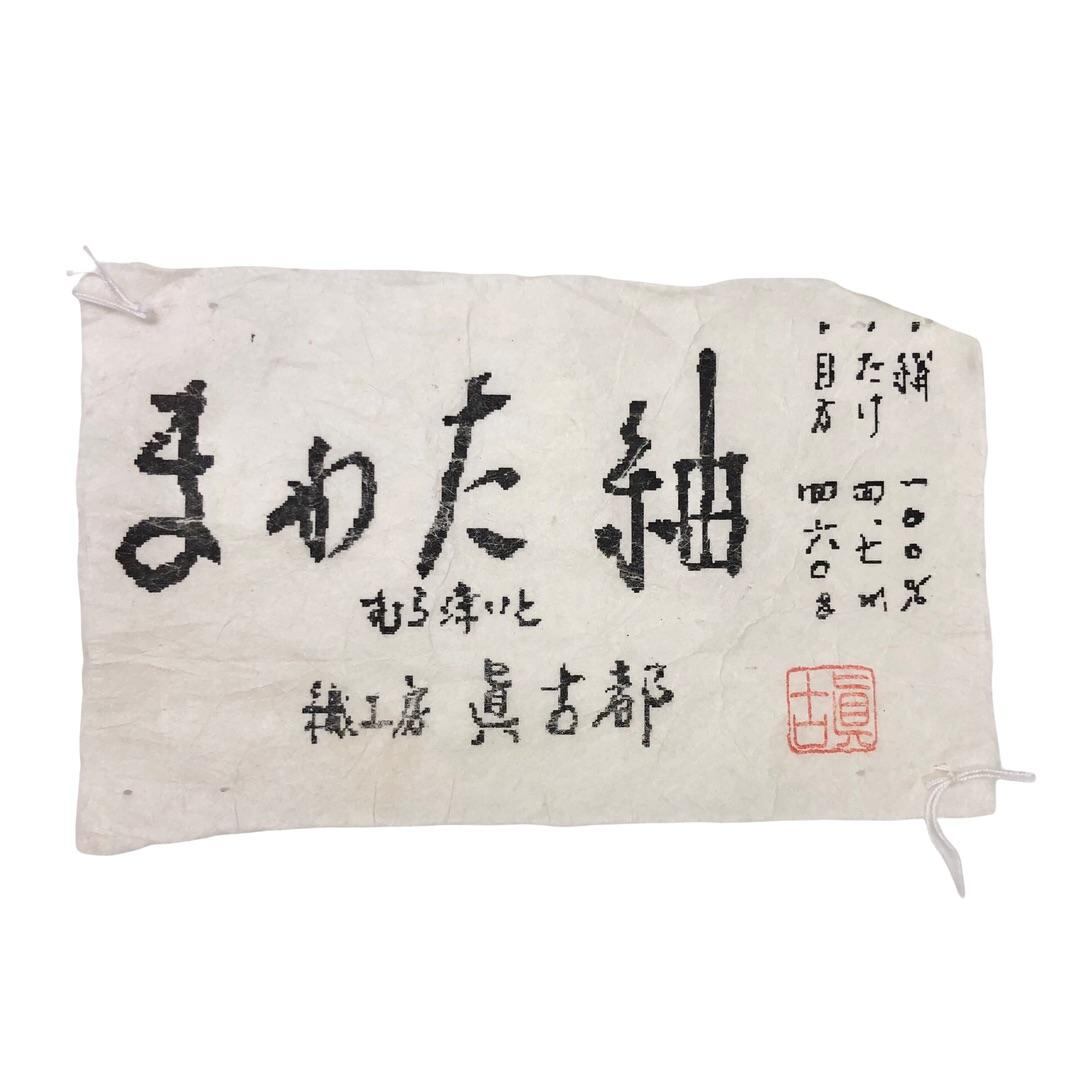 まわた紬
むら いと
織工房 眞古都
・絹 一〇〇%
・たけ 四.七m
・目方 四六〇g
眞古